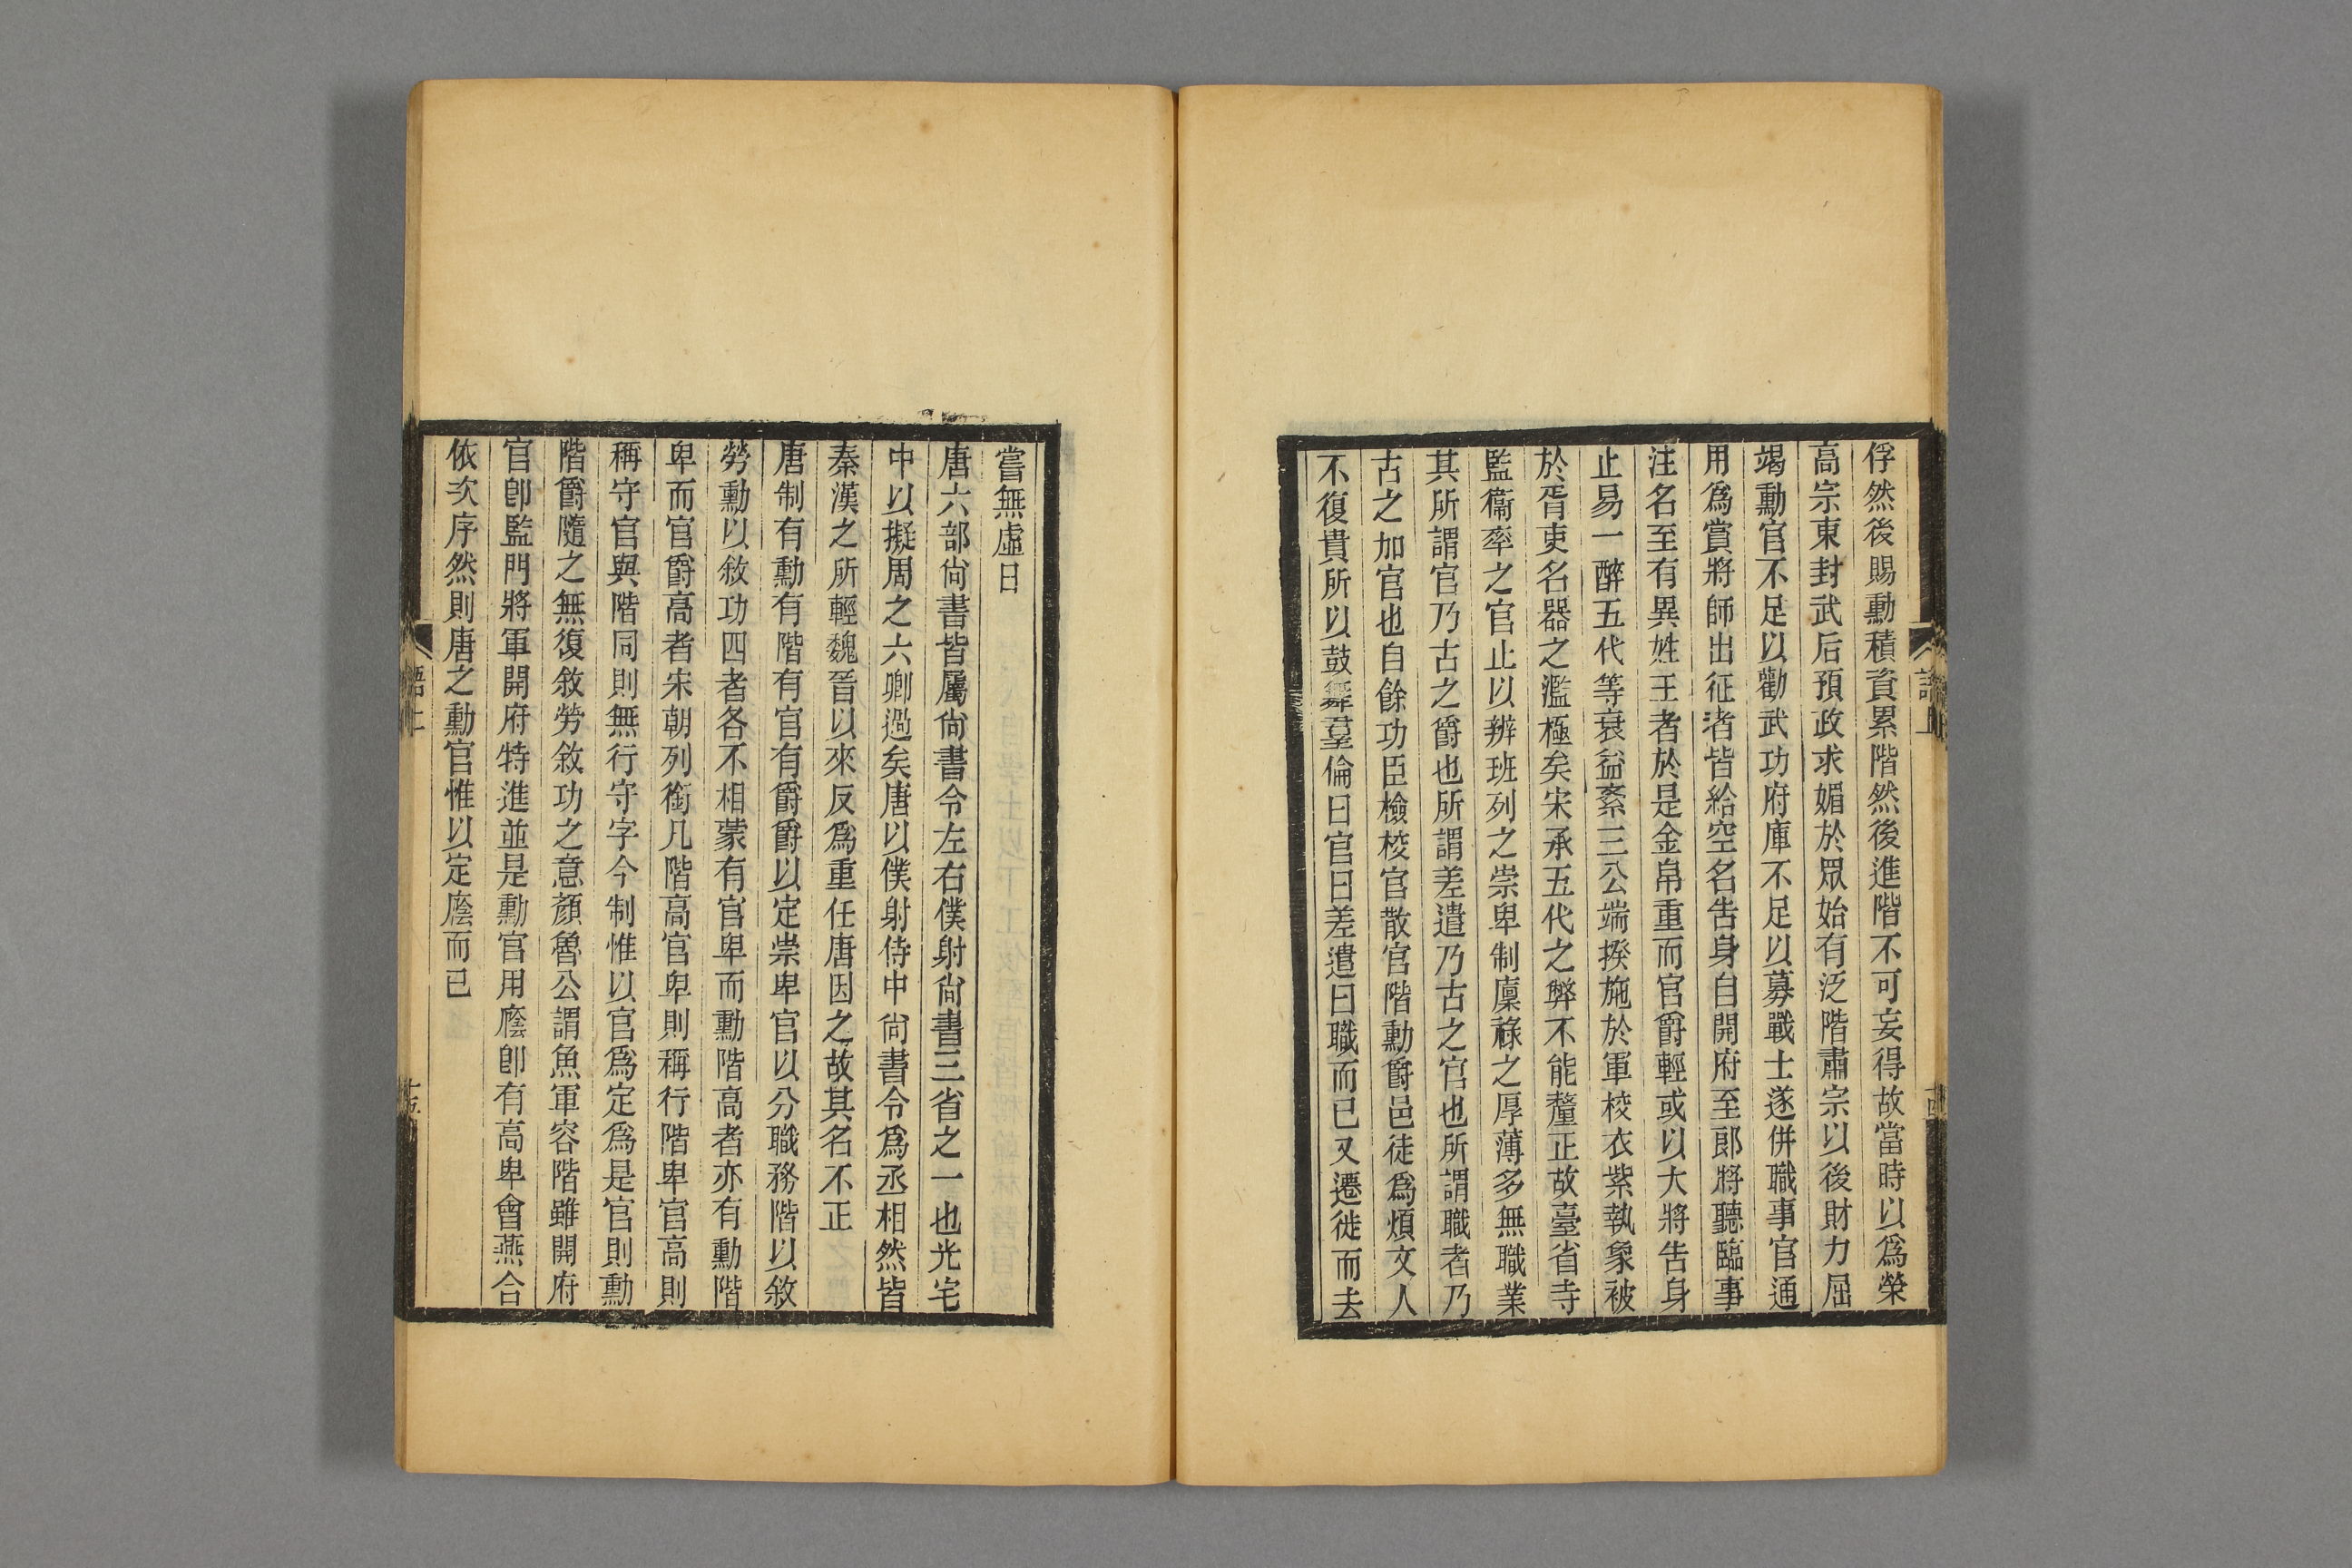 俘然後賜勳積資累階然後進階不可妄得故當時以爲榮
高宗東封武后預政求媚於眾始有泛階肅宗以後財力屈
竭勳官不足以勸武功府庫不足以募戰士遂併職事官通
用爲賞將師出征者皆給空名告身自開府至郎將聽臨事
注名至有異姓王者於是金帛重而官爵輕或以大將告身
止易一醉五代等衰益紊三公端揆施於軍校衣紫執象被
於胥吏名器之濫極矣宋承五代之弊不能釐正故臺省寺
監衞率之官止以辨班列之崇卑制廩祿之厚薄多無職業
其所謂官乃古之爵也所謂差遣乃古之官也所謂職者乃
古之加官也自餘功臣檢校官散官階勳爵邑徒爲煩文人
不復貴所以鼓舞羣倫曰官曰差遣曰職而已又遷徙而去
語上
嘗無虛日
唐六部尙書皆屬尙書令左右僕射尙書三省之一也光宅
中以擬周之六卿過矣唐以僕射侍中尙書令爲丞相然皆
秦漢之所輕魏晉以來反爲重任唐因之故其名不正
唐制有勳有階有官有爵爵以定崇卑官以分職務階以敘
勞勳以敘功四者各不相蒙有官卑而勳階高者亦有勳階
卑而官爵高者宋朝列銜凡階高官卑則稱行階卑官高則
稱守官與階同則無行守字今制惟以官爲定爲是官則勳
階爵隨之無復敘勞敘功之意顏魯公謂魚軍容階雖開府
官卽監門將軍開府特進並是勳官用廕卽有高卑會燕合
依次序然則唐之勳官惟以定廕而已
語上
十五